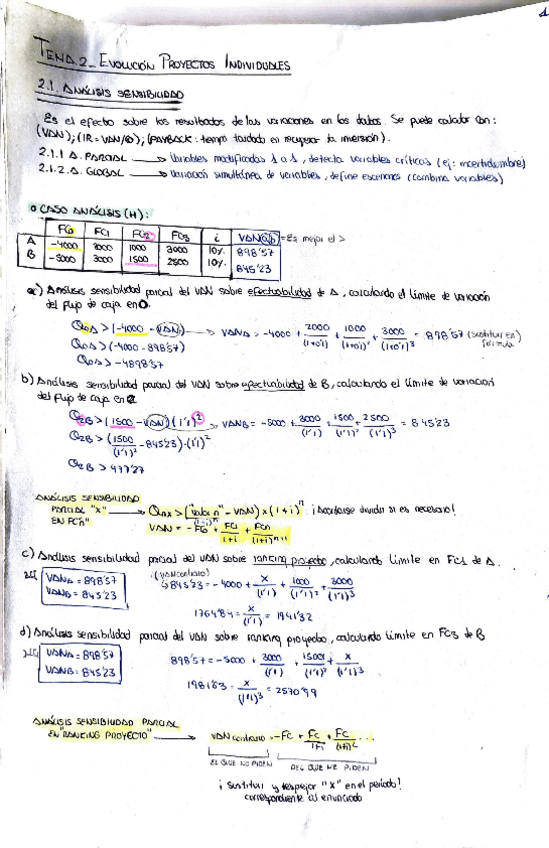 TEMA 2_ EVOLUCIÓN PROYECTOS INDIVIDUALES
2.1. ANÁLISIS SENSIBILIDAD
Es el efecto sobre los resultados de las variaciones en los datos. Se puede calcular con:
(VAN); (IR = VAN/Q); (PAYBACK: tiempo tardado en recuperar la inversión).
2.1.1 A. PARCIAL → Variables modificadas 1 a 1, detecta variables críticas (ej: incertidumbre)
2.1.2. A. GLOBAL → Variación simultánea de variables, define escenarios (combina variables)
o CASO ANÁLISIS (H):
FC0 FC1 FC2 FC3 i VAN = Es mejor el >
A -4000 2000 1000 3000 10% 898'57
B -5000 3000 1500 2500 10% 845'23
a) Análisis sensibilidad parcial del VAN sobre efectuabilidad de A, calculando el límite de variación
del flujo de caja en 0.
Q0A > (-4000 - VAN) → VANA = -4000 + 2000/(1+0'1) + 1000/(1+0'1)² + 3000/(1+0'1)³ = 898'57 (sustituir en) fórmula
Q0A > (-4000 - 898'57)
Q0A > -4898'57
b) Análisis sensibilidad parcial del VAN sobre efectuabilidad de B, calculando el límite de variación
del flujo de caja en 2
Q2B > (1500 - VAN)(1'1)² VANB = -5000 + 3000/(1'1) + 1500/(1'1)² + 2500/(1'1)³ = 845'23
Q2B > (1500/(1'1)² - 845'23)·(1'1)²
Q2B > 477'27
ANÁLISIS SENSIBILIDAD
PARCIAL "X" → Qnx > ("valor n"/(1+i)ⁿ - VAN) × (1+i)ⁿ ¡Acordarse dividir si es necesario!
EN FCn" VAN = -FC0 + FC1/1+i + FCn/(1+i)ⁿ
c) Análisis sensibilidad parcial del VAN sobre ranking proyecto, calculando límite en FC1 de A.
VANA = 898'57 (VAN contrario)
VANB = 845'23 845'23 = -4000 + x/(1'1) + 1000/(1'1)² + 3000/(1'1)³
1764'84 = x/(1'1) = 1941'32
d) Análisis sensibilidad parcial del VAN sobre ranking proyecto, calculando límite en FC3 de B
VANA = 898'57 898'57 = -5000 + 3000/(1'1) + 1500/(1'1)² + x/(1'1)³
VANB = 845'23
1931'63 = x/(1'1)³ = 2570'99
ANÁLISIS SENSIBILIDAD PARCIAL
EN "RANKING PROYECTO" → VAN contrario = -FC + FC/1+i + FC/(1+i)² ...
EL QUE NO PIDEN DEL QUE ME PIDEN
¡ Sustituir y despejar "x" en el periodo !
correspondiente al enunciado